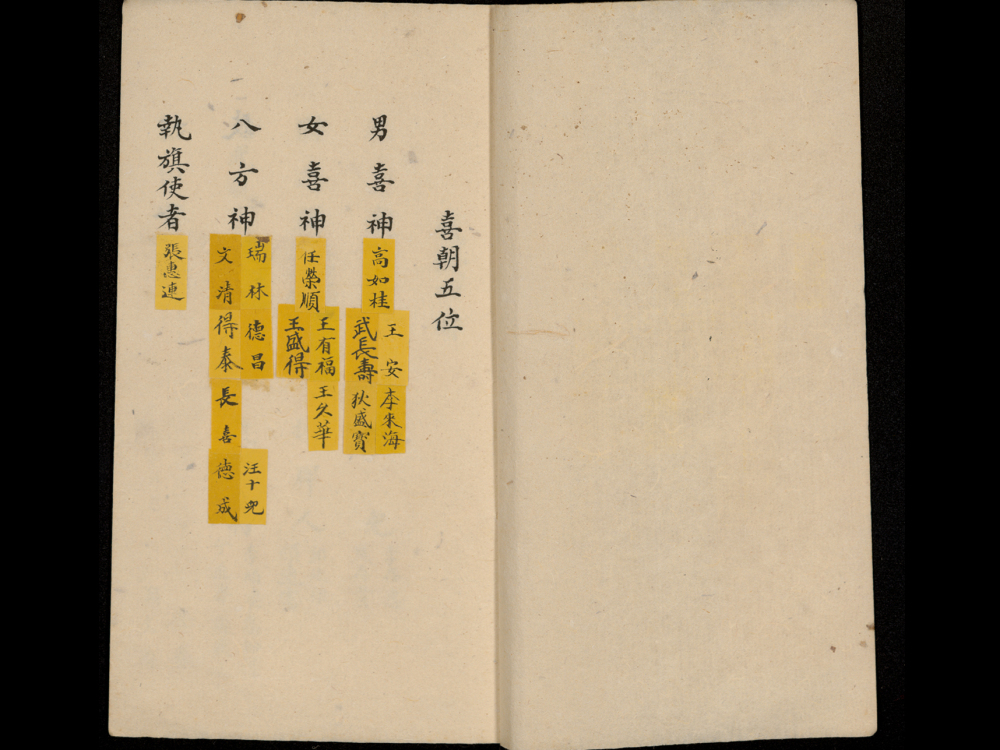 喜朝五位
男喜神
高如桂
王安
武長壽
李來海
狄盛寳
女喜神
任榮順
王有福
王盛得
王久華
八方神
瑞林
文清
德昌
得泰
長喜
汪十兜
德成
執旗使者
張惠連